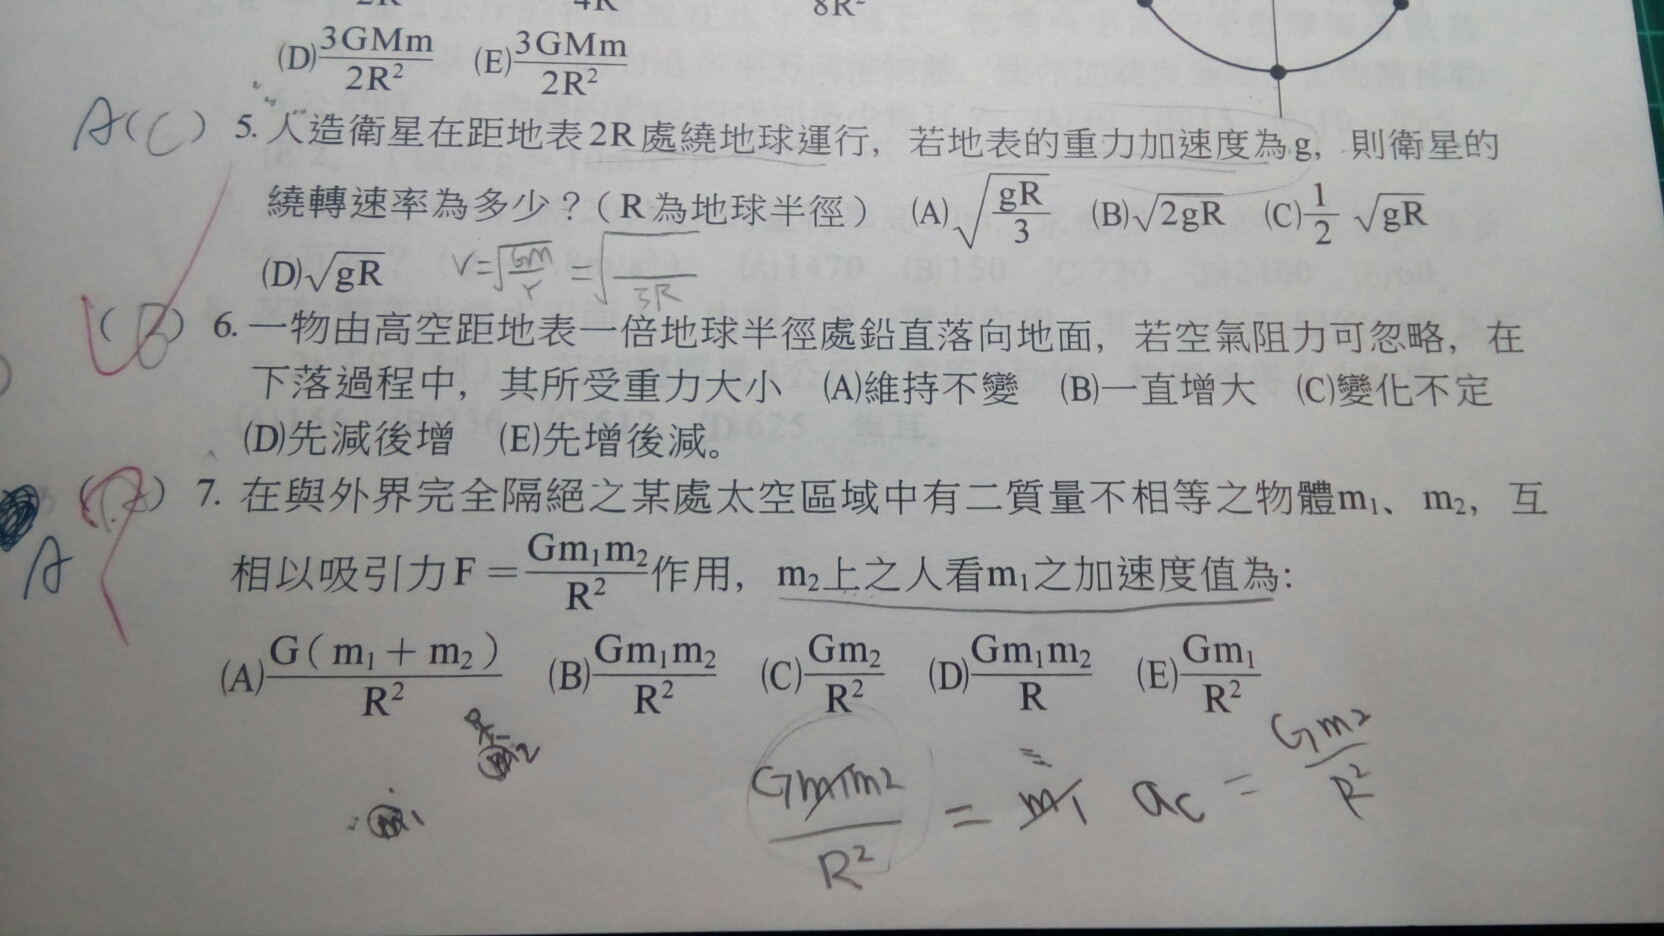 2R 4R 8R²
(D)3GMm/2R² (E)3GMm/2R²
A(C) 5. 人造衛星在距地表2R處繞地球運行，若地表的重力加速度為g，則衛星的
繞轉速率為多少？（R為地球半徑） (A)√(gR/3) (B)√2gR (C)1/2 √gR
(D)√gR V=√(GM/r) = √( /3R)
(B) 6. 一物由高空距地表一倍地球半徑處鉛直落向地面，若空氣阻力可忽略，在
下落過程中，其所受重力大小 (A)維持不變 (B)一直增大 (C)變化不定
(D)先減後增 (E)先增後減。
7. 在與外界完全隔絕之某處太空區域中有二質量不相等之物體m₁、m₂，互
A 相以吸引力F＝Gm₁m₂/R²作用，m₂上之人看m₁之加速度值為：
(A)G(m₁＋m₂)/R² (B)Gm₁m₂/R² (C)Gm₂/R² (D)Gm₁m₂/R (E)Gm₁/R²
m₂
m₁ Gm₁m₂/R² = m₁ ac = Gm₂/R²